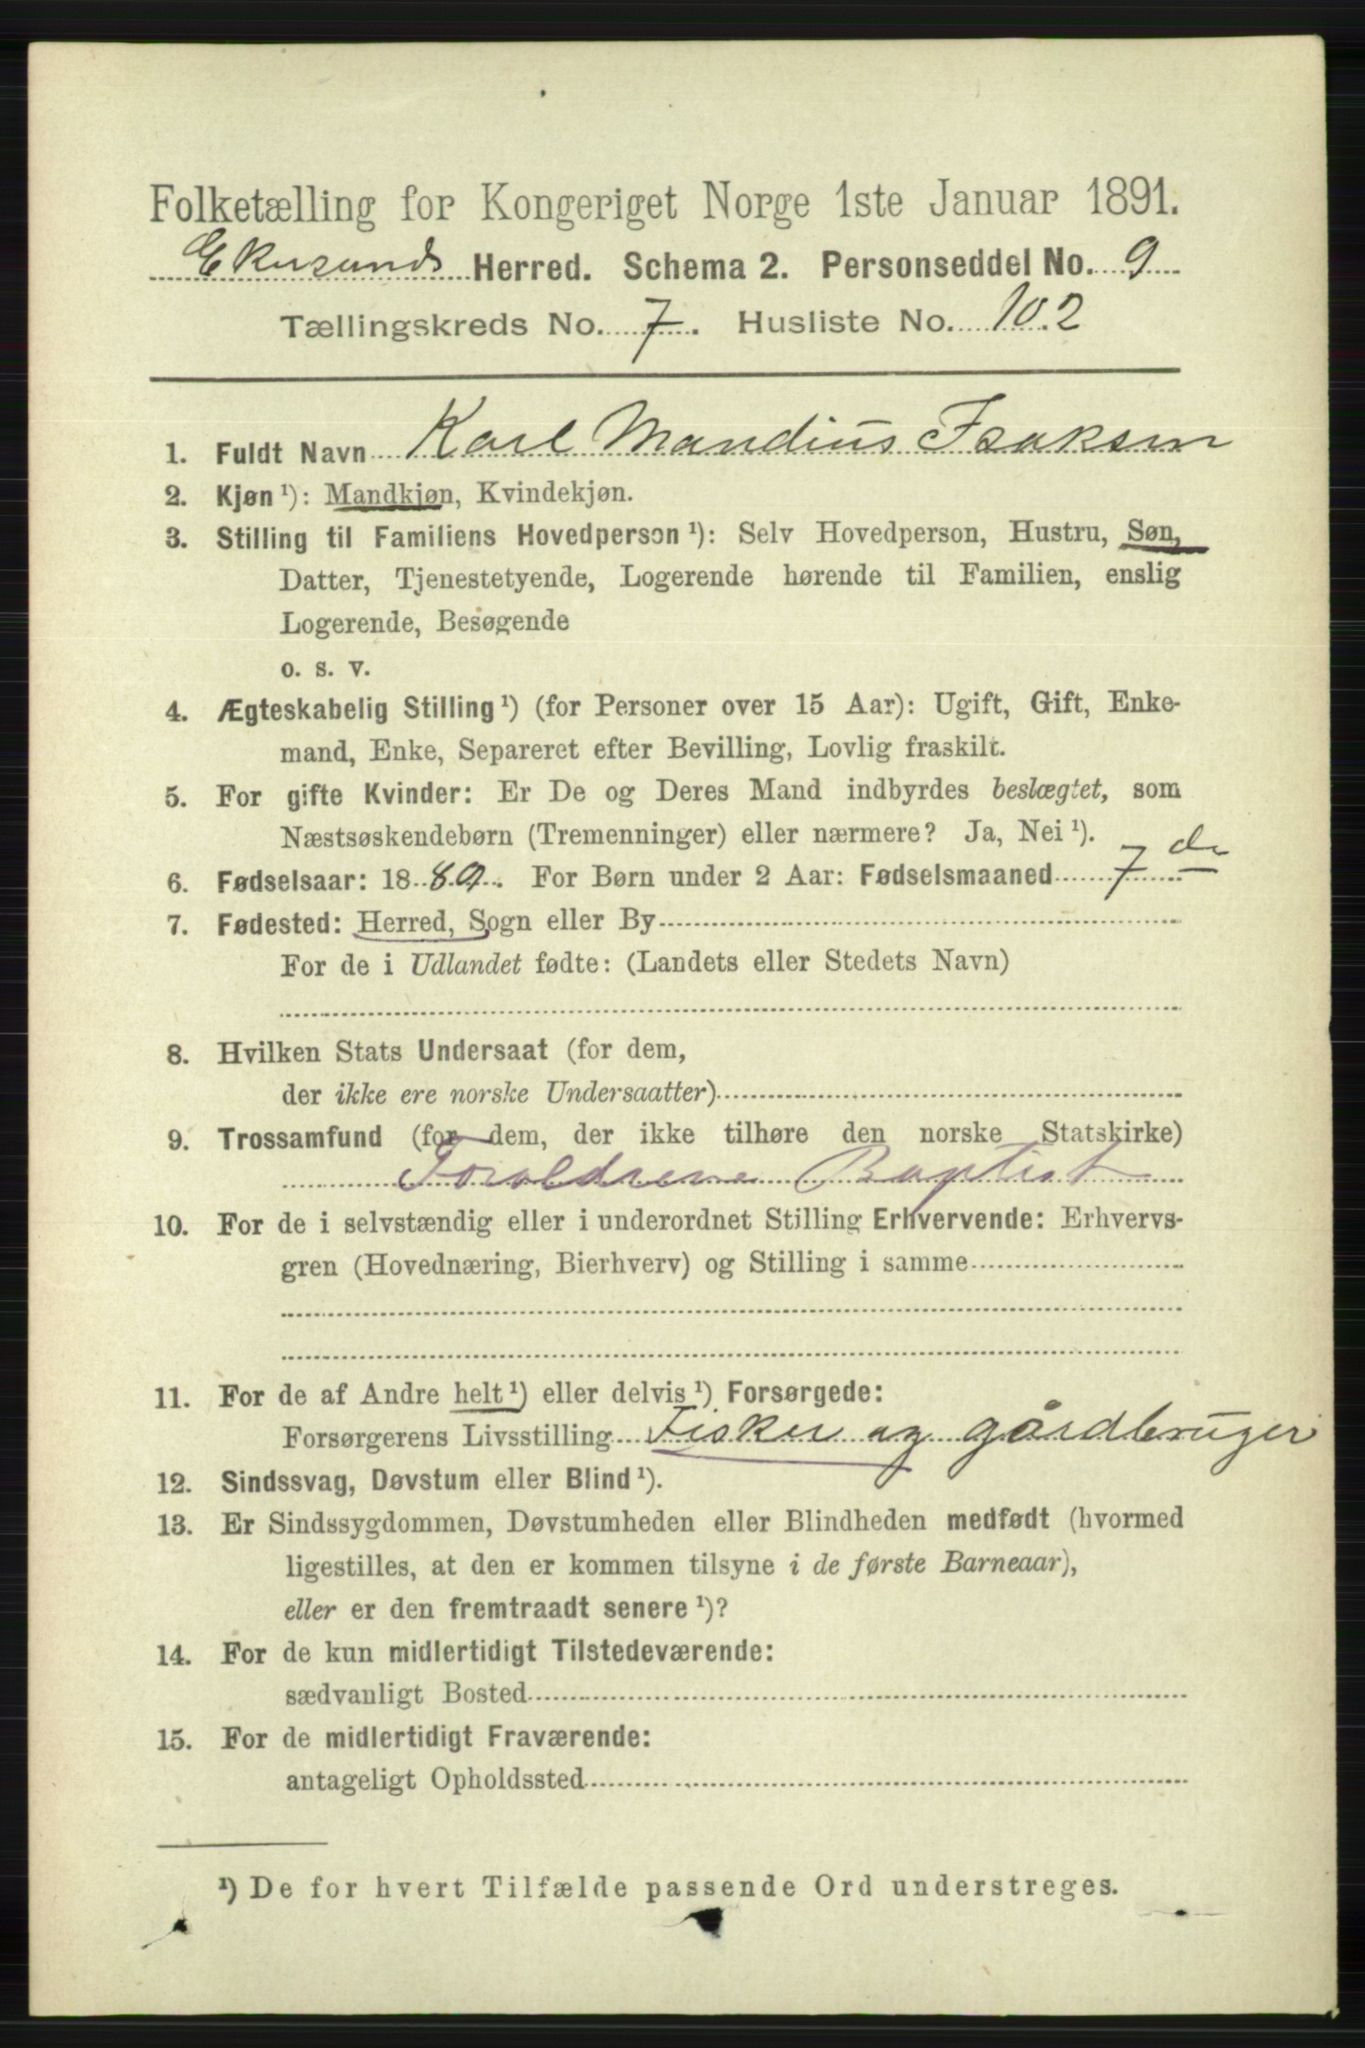 Folketælling for Kongeriget Norge 1ste Januar 1891.
Ekersunds Herred. Schema 2. Personseddel No. 9
Tællingskreds No. 7. Husliste No. 102
1. Fuldt Navn Karl Mandius Isaksen
2. Kjøn ¹): Mandkjøn, Kvindekjøn.
3. Stilling til Familiens Hovedperson ¹): Selv Hovedperson, Hustru, Søn,
Datter, Tjenestetyende, Logerende hørende til Familien, enslig
Logerende, Besøgende
o. s. v.
4. Ægteskabelig Stilling ¹) (for Personer over 15 Aar): Ugift, Gift, Enke-
mand, Enke, Separeret efter Bevilling, Lovlig fraskilt.
5. For gifte Kvinder: Er De og Deres Mand indbyrdes beslægtet, som
Næstsøskendebørn (Tremenninger) eller nærmere? Ja, Nei ¹).
6. Fødselsaar: 1889. For Børn under 2 Aar: Fødselsmaaned 7 de
7. Fødested: Herred, Sogn eller By
For de i Udlandet fødte: (Landets eller Stedets Navn)
8. Hvilken Stats Undersaat (for dem,
der ikke ere norske Undersaatter)
9. Trossamfund (for dem, der ikke tilhøre den norske Statskirke)
Foreldrene Baptist
10. For de i selvstændig eller i underordnet Stilling Erhvervende: Erhvervs-
gren (Hovednæring, Bierhverv) og Stilling i samme
11. For de af Andre helt ¹) eller delvis ¹) Forsørgede:
Forsørgerens Livsstilling Fisker og gårdbruger
12. Sindssvag, Døvstum eller Blind ¹).
13. Er Sindssygdommen, Døvstumheden eller Blindheden medfødt (hvormed
ligestilles, at den er kommen tilsyne i de første Barneaar),
eller er den fremtraadt senere ¹)?
14. For de kun midlertidigt Tilstedeværende:
sædvanligt Bosted
15. For de midlertidigt Fraværende:
antageligt Opholdssted
¹) De for hvert Tilfælde passende Ord understreges.